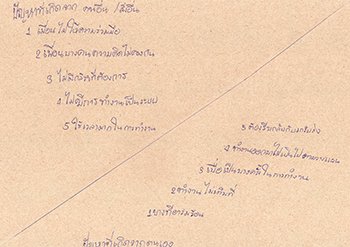 ปัญหาที่เกิดจาก คนอื่น / สิ่งอื่น
1 เพื่อนไม่ให้ความร่วมมือ
2 เพื่อนบางคนความคิดไม่ตรงกัน
3 ไม่มีสิ่งที่ต้องการ
4 ไม่มีการทำงานเป็นระบบ
5 ใช้เวลามากในการทำงาน
5 ต้องเรียน
4 ทำงานออกมาไม่เป็นไปตามแผน
3 เบื่อเป็นบางครั้งในการทำงาน
2 ทำงานไม่ทัน
1 บางทีอารมร้อน
ปัญหาที่เกิดจากตนเอง